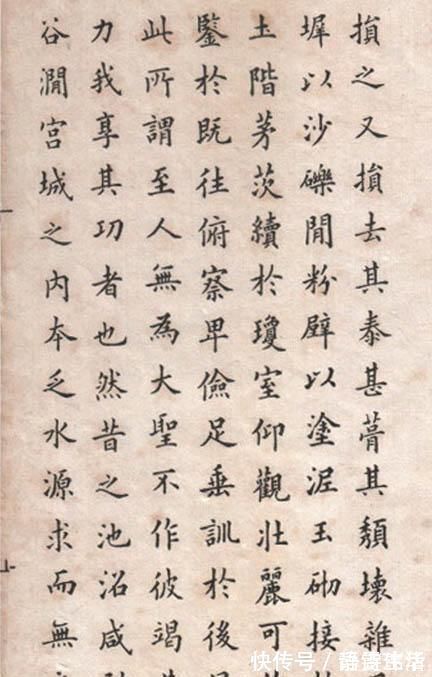 損之又損去其泰甚葺其頹壞雜
墀以沙礫閒粉壁以塗泥玉砌接
土階茅茨續於瓊室仰觀壯麗可
鑒於既往俯察卑儉足垂訓於後
此所謂至人無為大聖不作彼竭
力我享其功者也然昔之池沼咸
谷澗宮城之內本乏水源求而無
快传号/静雪生活